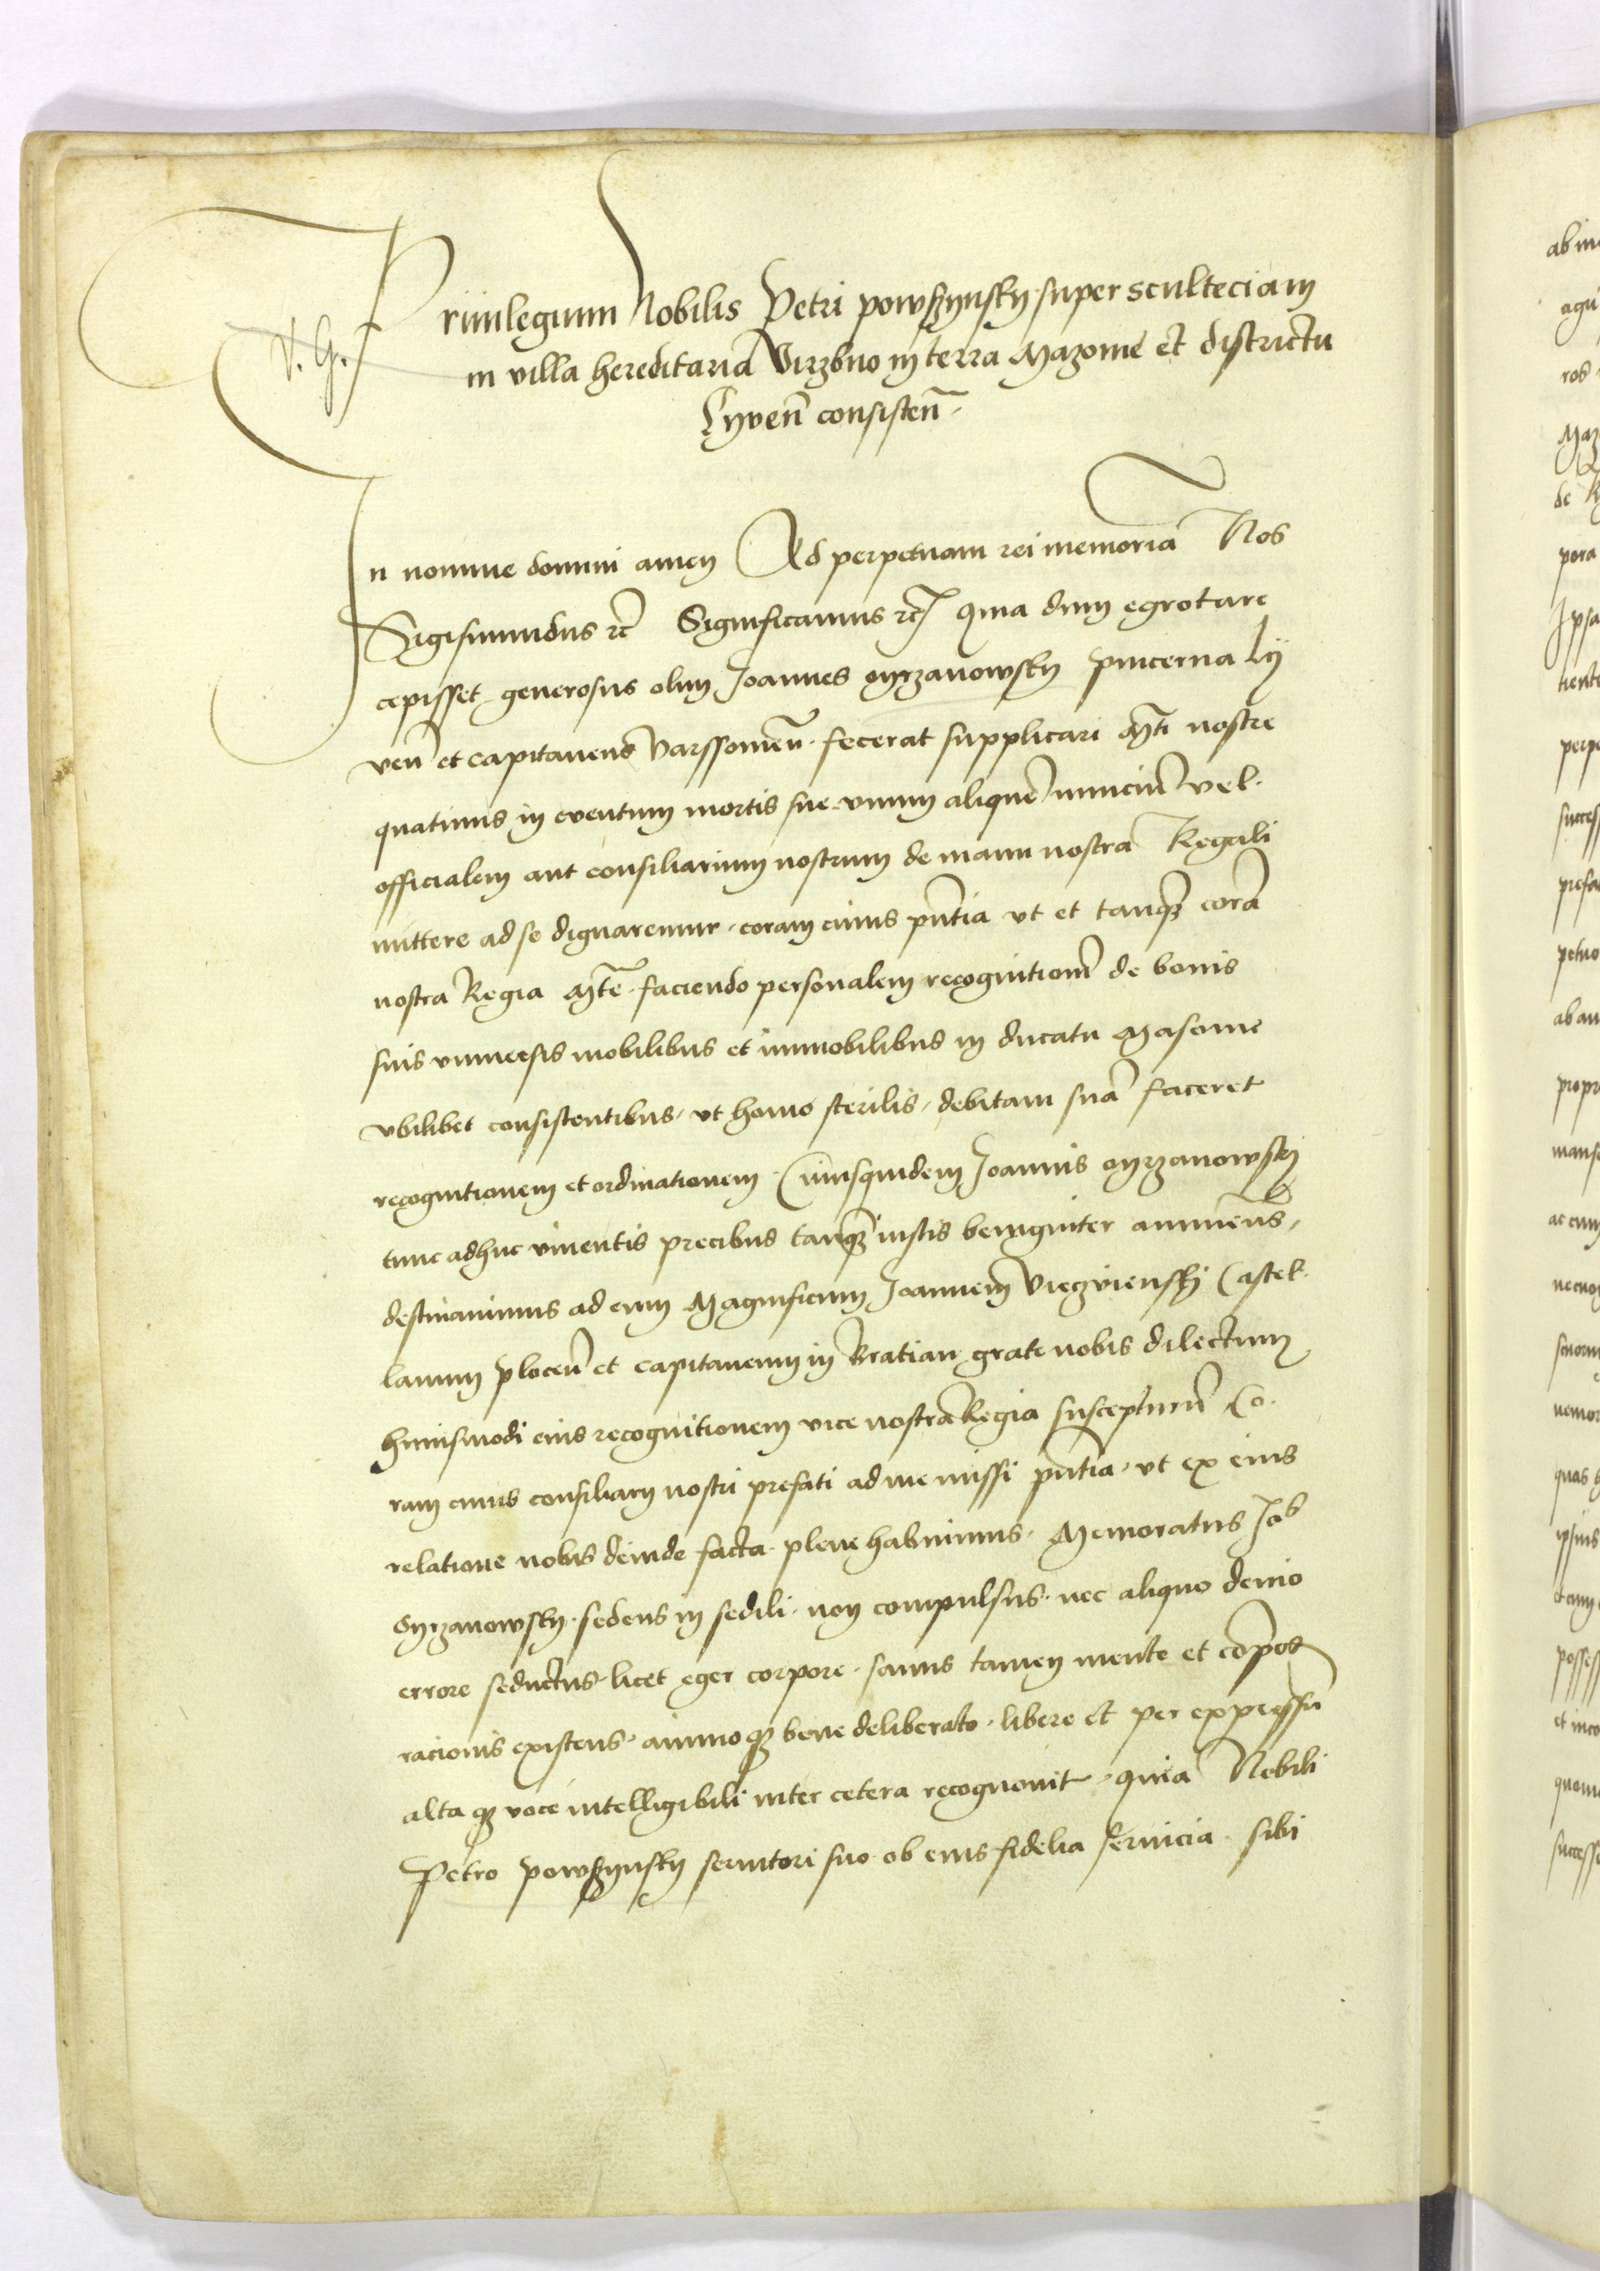 V. G.
Priuilegium Nobilis Petri powssynsky super sculteciam
in villa hereditaria Virzbno in terra Mazouie et districtu
Lyven̄ consisten̄
In nomine domini amen Ad perpetuam rei memoriā Nos
Sigismundus ꝛc̄ Significamus ꝛc̄ quia dum egrotare
cepisset generosus olim Joannes oyrzanowsky pincerna Ly
ven̄ et capitaneus Varssouien̄ fecerat supplicari Mti nostre
quatinus in eventum mortis sue vnum aliquē nunciū vel
officialem aut consiliarium nostrum de manu nostra Regali
mittere ad se dignaremur coram cuius pn̄tia vt et tanq̄ȝ corā
nostra Regia Mte faciendo personalem recognitionē de bonis
suis vniuersis mobilibus et immobilibus in ducatu Masouie
vbilibet consistentibus, vt homo sterilis, debitam suā faceret
recognitionem et ordinationem. Cuiusquidem Joannis oyrzanowsky
tunc adhuc viuentis precibus tanq̄ȝ iustis benigniter annuen̄s,
destinauimus ad eum Magnificum Joannem Vieczvienski Castel
lanum plocen̄ et capitaneum in Bratian grate nobis dilectum
huiusmodi eius recognitionem vice nostra Regia suscepturū Co
ram cuius consiliarij nostri prefati ad me missi pn̄tia, vt ex eius
relatione nobis deinde facta plene habuimus. Memoratus Joēs
oyrzanowsky sedens in sedili, non compulsus, nec aliquo deuio
errore seductus licet eger corpore, sanus tamen mente et cōpos
racionis existens, animoqȝ bene deliberato, libere et per expressū
altaqȝ voce intelligibili inter cetera recognouit, quia Nobili
Petro powssynsky seruitori suo ob eius fidelia seruicia sibi